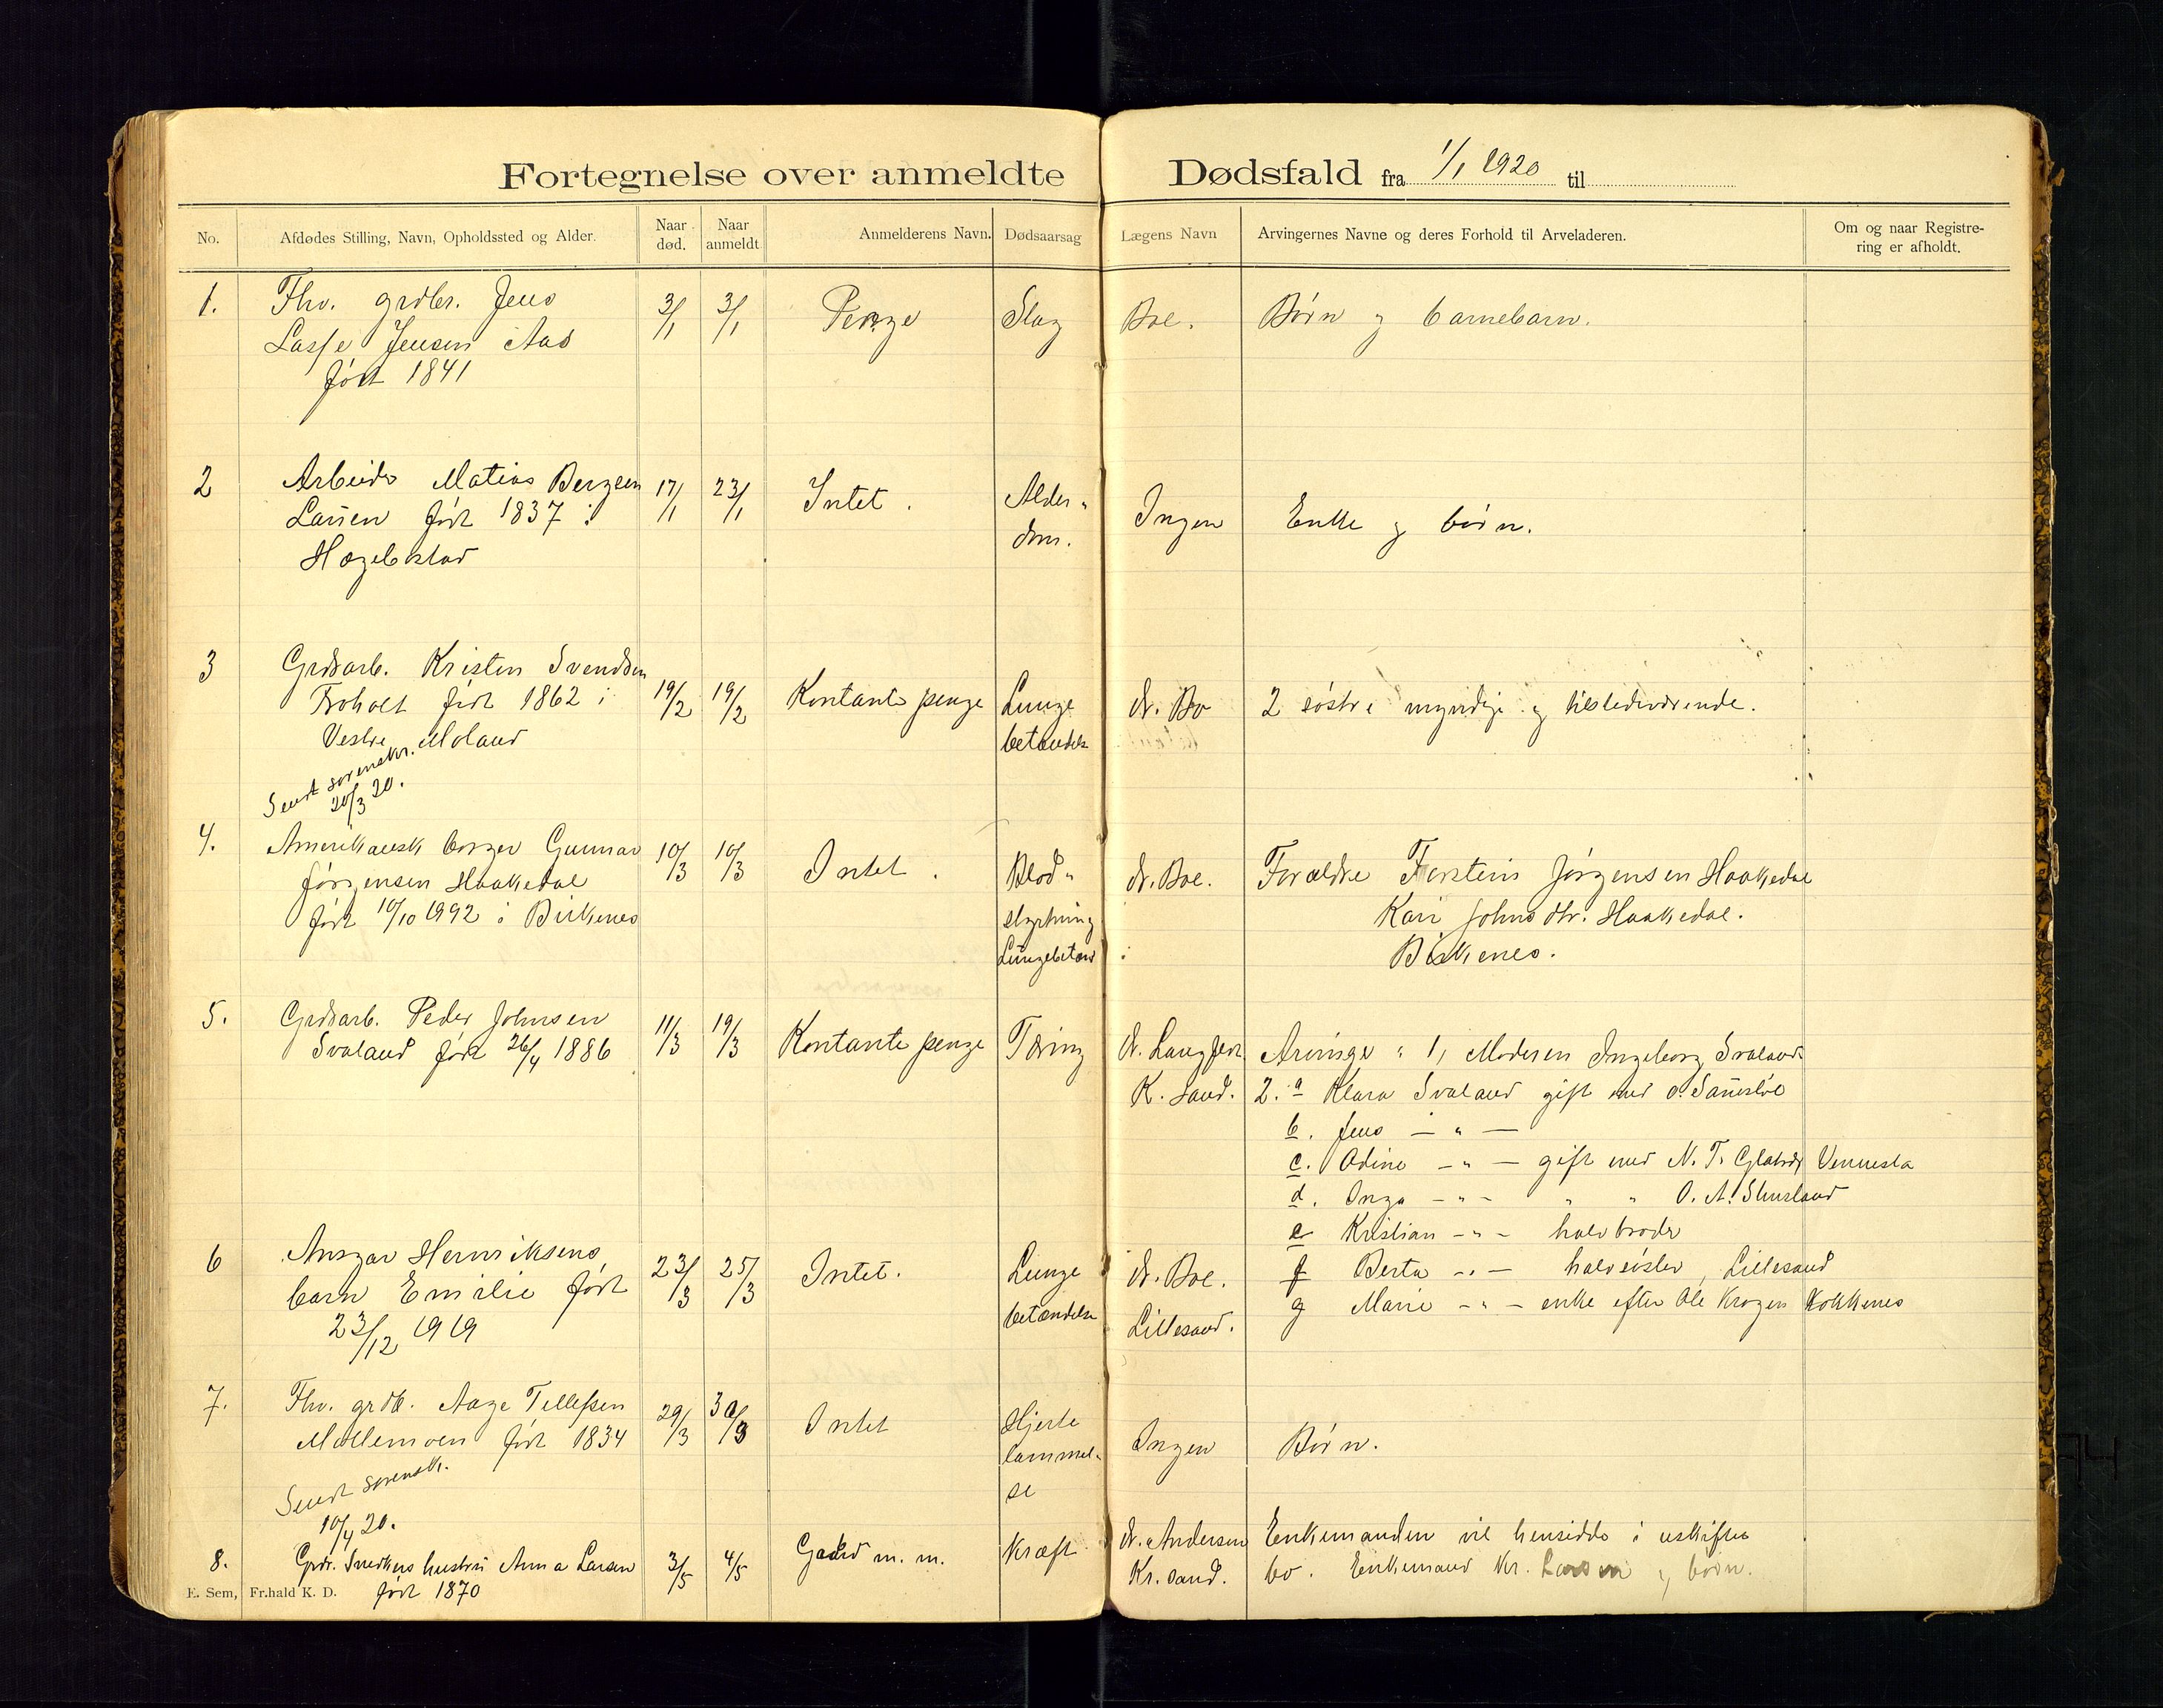 Fortegnelse over anmeldte Dødsfald fra 1/1 1920 til
No. Afdødes Stilling, Navn, Opholdssted og Alder. Naar død. Naar anmeldt Anmelderens Navn. Dødsaarsag Lægens Navn Arvingernes Navne og deres Forhold til Arveladeren. Om og naar Registrering er afholdt.
1. Fhv. grdbr. Jens 3/1 3/1 Penge Slag Boe. Børn og barnebarn.
Lasse Jensen Aas
født 1841
2 Arbeider Matias Bergsen 17/1 23/1 Intet. Alder- Ingen Enke og børn.
Larsen født 1837 i dom.
Hægebostad
3 Grdsarb. Kristen Svendsen 19/2 19/2 Kontante penge Lunge dr. Bo 2 søstre myndige og tilstedeværende.
Troholt født 1862 i betændelse
Vestre Moland
Sendt sorenskr.
20/3 20.
4. Amerikansk borger Gunnar 10/3 10/3 Intet. Blod- dr. Boe. Forældre Torstein Jørgensen Haakedal
Jørgensen Haakedal styrtning Kari Johnsdtr. Haakedal.
født 10/10 1992 i Birkenes Lungebetænd. Birkenes.
5. Grdsarb. Peder Johnsen 11/3 19/3 Kontante penge Tæring dr. Langfeldt Arvinge: 1, Moderen Ingeborg Svaland
Svaland født 26/4 1886 K. Sand. 2. a Klara Svaland gift med O.
b. Jens — " —
c. Odine — " — gift med N. T. Vennesla
d. Inga — " — " " O. A.
e Kristian — " — halvbroder
f Berta — " — halvsøster, Lillesand
g Marie — " — enke efter Ole Krogen Kokkenes
6 Ansgar Henriksens 23/3 25/3 Intet. Lunge dr. Boe.
barn Emilie født betændelse Lillesand.
23/12 1919
7. Fhv. grdb. Aage Tellefsen 29/3 30/3 Intet Hjerte Ingen Børn.
Mollemoen født 1834 lammel-
se
Sendt sorensk.
10/4 20.
8. Grdr. Snedkers hustru Anna Larsen 3/5 4/5 Gaard m. m. Kræft dr. Andersen Enkemanden vil hensidde i uskiftet
født 1870 Kr. sand. bo. Enkemand Kr. Larsen og børn.
E. Sem, Fr.hald K. D.